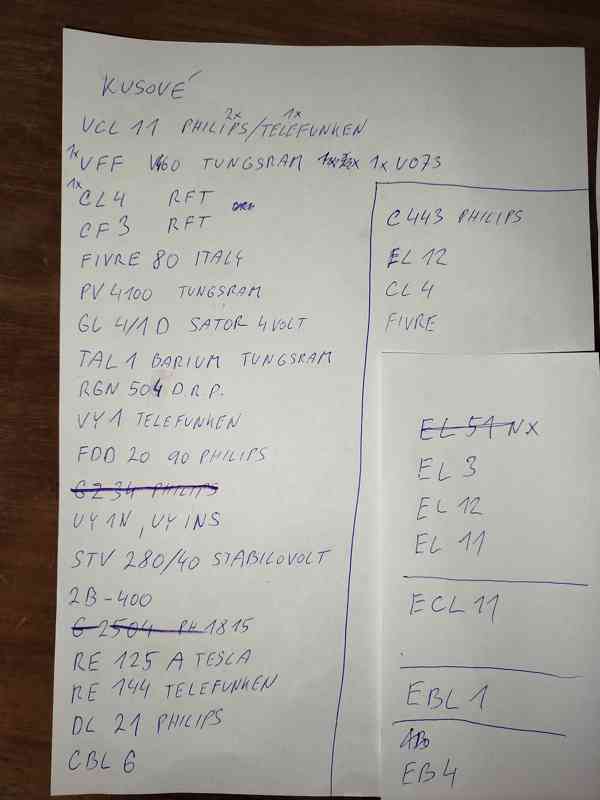 KUSOVÉ
UCL 11 PHILIPS/TELEFUNKEN
2x 1x
1x UFF 160 TUNGSRAM 1x UO73
1x CL4 RFT
CF3 RFT
FIVRE 80 ITALY
PV 4100 TUNGSRAM
GL 4/1 D SATOR 4VOLT
TAL 1 BARIUM TUNGSRAM
RGN 504 D.R.P.
VY 1 TELEFUNKEN
FDD 20 90 PHILIPS
GZ 34 PHILIPS
UY 1N, UY 1NS
STV 280/40 STABILOVOLT
2B-400
G 2504 PH 1815
RE 125 A TESLA
RE 144 TELEFUNKEN
DL 21 PHILIPS
CBL 6
C443 PHILIPS
EL 12
CL 4
FIVRE
EL 51 NX
EL 3
EL 12
EL 11
ECL 11
EBL 1
EB4